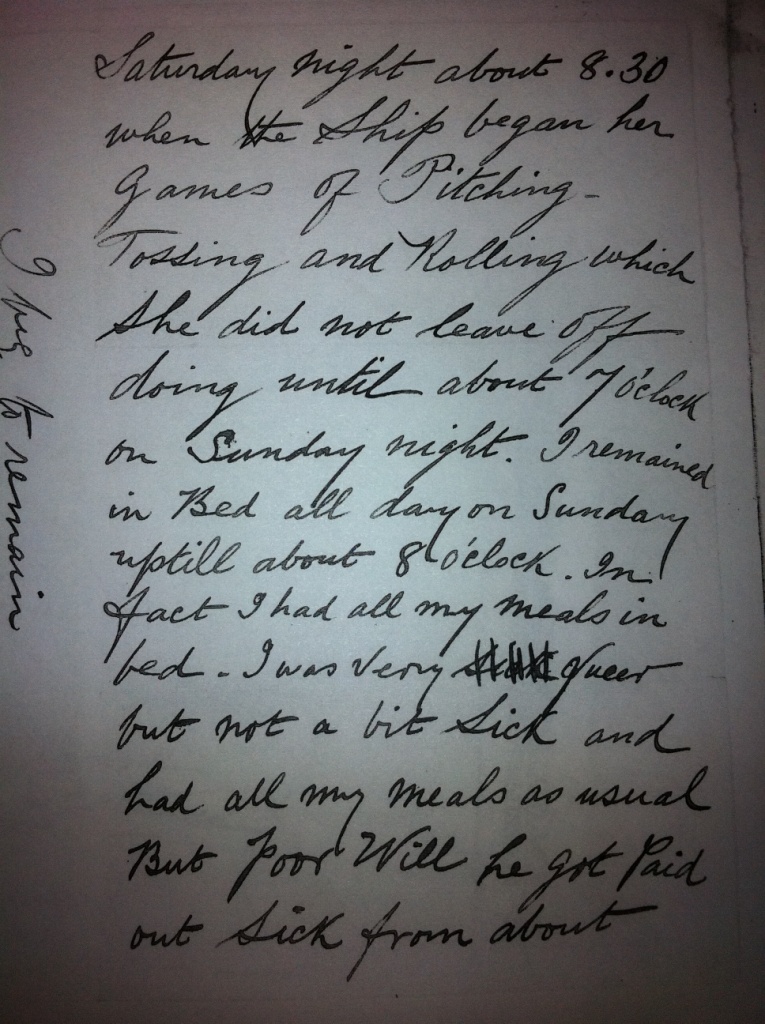 Saturday night about 8.30
when the Ship began her
Games of Pitching -
Tossing and Rolling which
she did not leave off
doing until about 7 o'clock
on Sunday night. I remained
in Bed all day on Sunday
uptill about 8 o'clock. In
fact I had all my meals in
bed - I was very queer
but not a bit sick and
had all my meals as usual
But poor Will he got Paid
out sick from about
I beg to remain